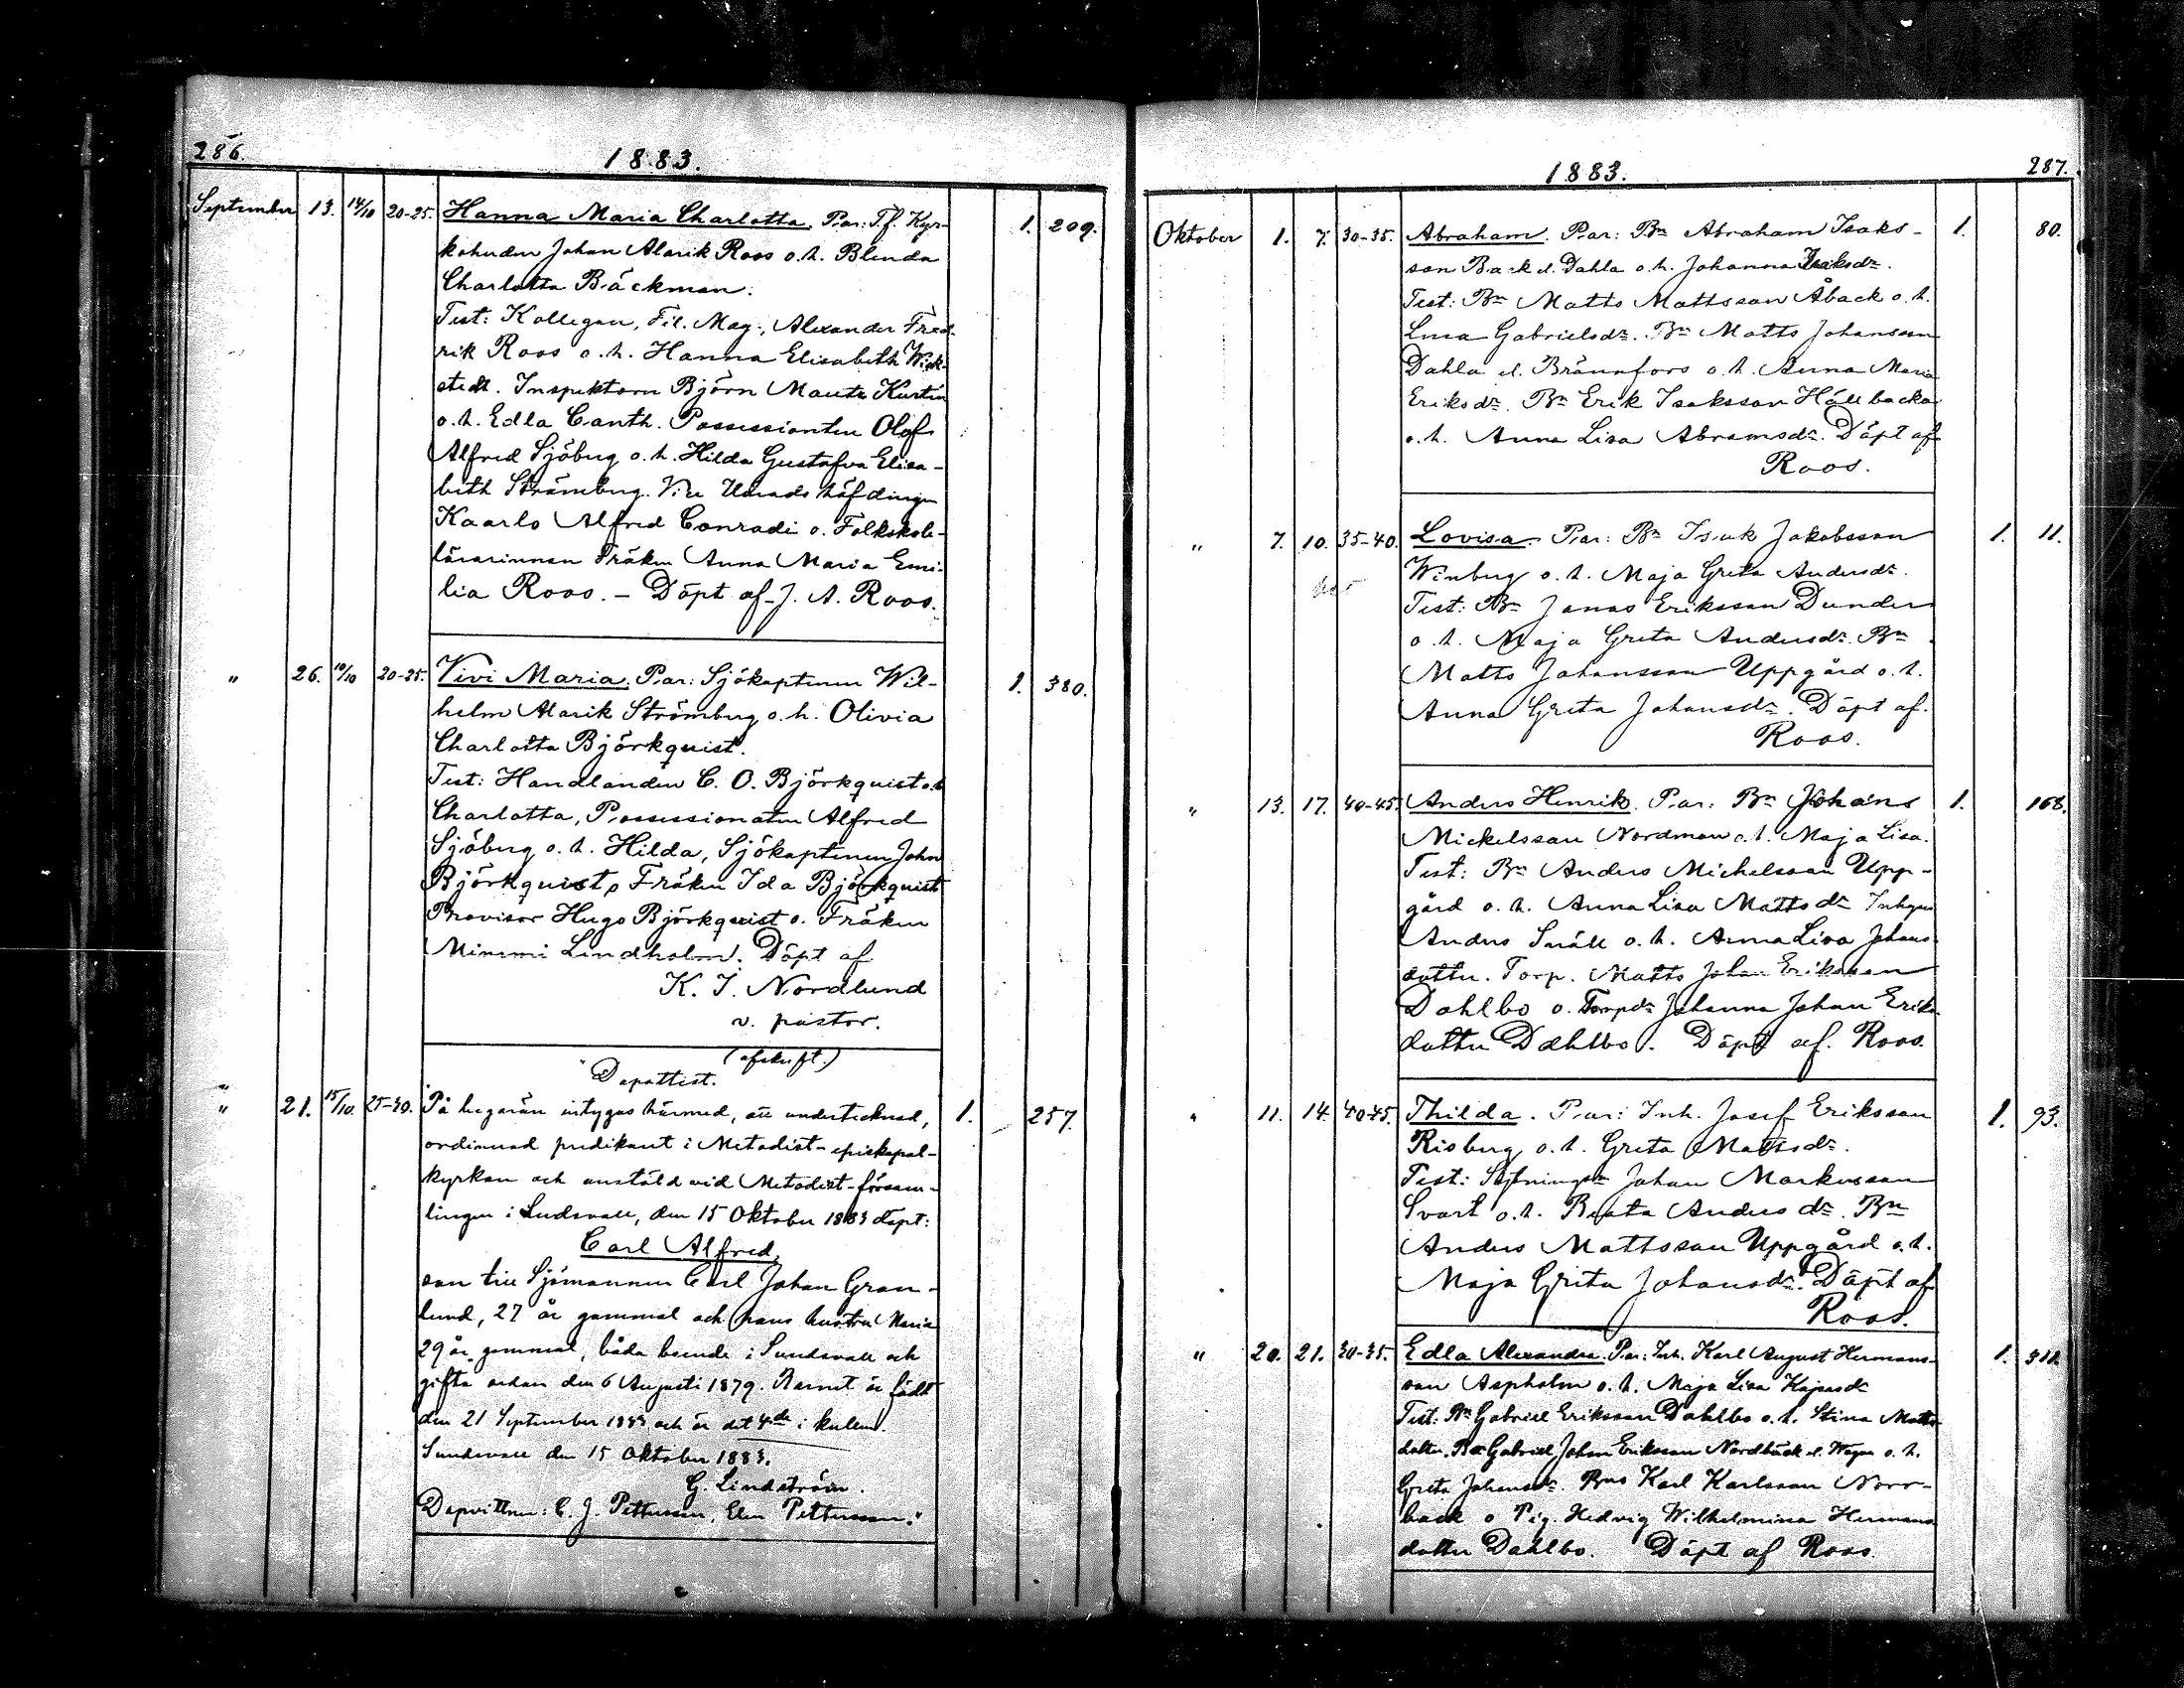 286.
1883.
September 13. 14/10 20-25. Hanna Maria Charlotta. Par: Tf. Kyr- 1. 209.
koherden Johan Alarik Roos o. h. Blenda
Charlotta Bäckman.
Test: Kollegan, Fil. Mag., Alexander Fred-
rik Roos o. h. Hanna Elisabeth Wick-
stedt. Inspektorn Björn Mauritz Kurtén
o. h. Edla Canth. Possessionaten Olof
Alfred Sjöberg o. h. Hilda Gustafva Elisa-
beth Strömberg. Vice Häradshöfdingen
Kaarlo Alfred Conradi o. Folkskole-
lärarinnan Fröken Anna Maria Emi-
lia Roos. – Döpt af J. A. Roos.
" 26. 10/10 20-25. Vivi Maria. Par: Sjökaptenen Wil- 1. 380.
helm Alarik Strömberg o. h. Olivia
Charlotta Björkquist.
Test: Handlanden C. O. Björkquist o. h.
Charlotta, Possessionaten Alfred
Sjöberg o. h. Hilda, Sjökaptenen John
Björkquist o Fröken Ida Björkquist
Provisor Hugo Björkquist o. Fröken
Mimmi Lindholm. Döpt af
K. I. Nordlund
v. pastor.
(afskrift.)
"Dopattest.
" 21. 15/10. 25-30. På begäran intygas härmed, att undertecknad, 1. 257.
ordinerad predikant i Metodist-episkopal-
kyrkan och anstäld vid Metodist-försam-
lingen i Sundsvall, den 15 Oktober 1883 döpt:
Carl Alfred,
son till Sjömannen Carl Johan Gran-
lund, 27 år gammal och hans hustru Maria
29 år gammal, båda boende i Sundsvall och
gifta sedan den 6 Augusti 1879. Barnet är födt
den 21 September 1883 och är det 4de i kullen.
Sundsvall den 15 Oktober 1883.
G. Lindström.
Dopvittnen: C. J. Pettersson, Elin Pettersson."
1883.
287.
Oktober 1. 7. 30-35. Abraham. Par: Bn Abraham Isaks- 1. 80.
son Back l. Dahla o. h. Johanna Isaksdr.
Test: Bn Matts Mattsson Åback o. h.
Lina Gabrielsdr. Bn Matts Johansson
Dahla l. Brännfors o. h. Anna Maria
Eriksdr. Bn Erik Isaksson Hällbacka
o. h. Anna Lisa Abramsdr. Döpt af
Roos.
" 7. 10. 35-40. Lovisa. Par: Bn Isak Jakobsson 1. 11.
Winberg o. h. Maja Greta Andersdr.
Test: Bn Jonas Eriksson Dunder
o. h. Maja Greta Andersdr. Bn
Matts Johansson Uppgård o. h.
Anna Greta Johansdr. Döpt af.
Roos.
" 13. 17. 40-45. Anders Henrik. Par: Bn Johans 1. 168.
Mickelsson Nordman o. h. Maja Lisa.
Test: Bn Anders Michelsson Upp-
gård o. h. Anna Lisa Mattsdr Inhyses
Anders Snäll o. h. Anna Lisa Johans-
dotter. Torp. Matts Johan Eriksson
Dahlbo o. Torpdr Johanna Johan Eriks-
dotter Dahlbo. Döpt af. Roos.
" 11. 14. 40-45. Thilda. Par: Inh. Josef Eriksson 1. 93.
Risberg o. h. Greta Mattsdr.
Test: Sytningsm Johan Markusson
Svart o. h. Beata Andersdr. Bn
Anders Mattsson Uppgård o. h.
Maja Greta Johansdr. Döpt af
Roos.
" 20. 21. 30-35. Edla Alexandra. Par: Inh. Karl August Hermans- 1. 311.
son Aspholm o. h. Maja Lisa Kajsasdr
Test: Bn Gabriel Eriksson Dahlbo o. h. Stina Matts-
dotter. Bn Gabriel Johan Eriksson Nordbäck l. Wägar o. h.
Greta Johansdr. Bns Karl Karlsson Norr-
back o Pig. Hedvig Wilhelmina Hermans-
dotter Dahlbo. Döpt af Roos.